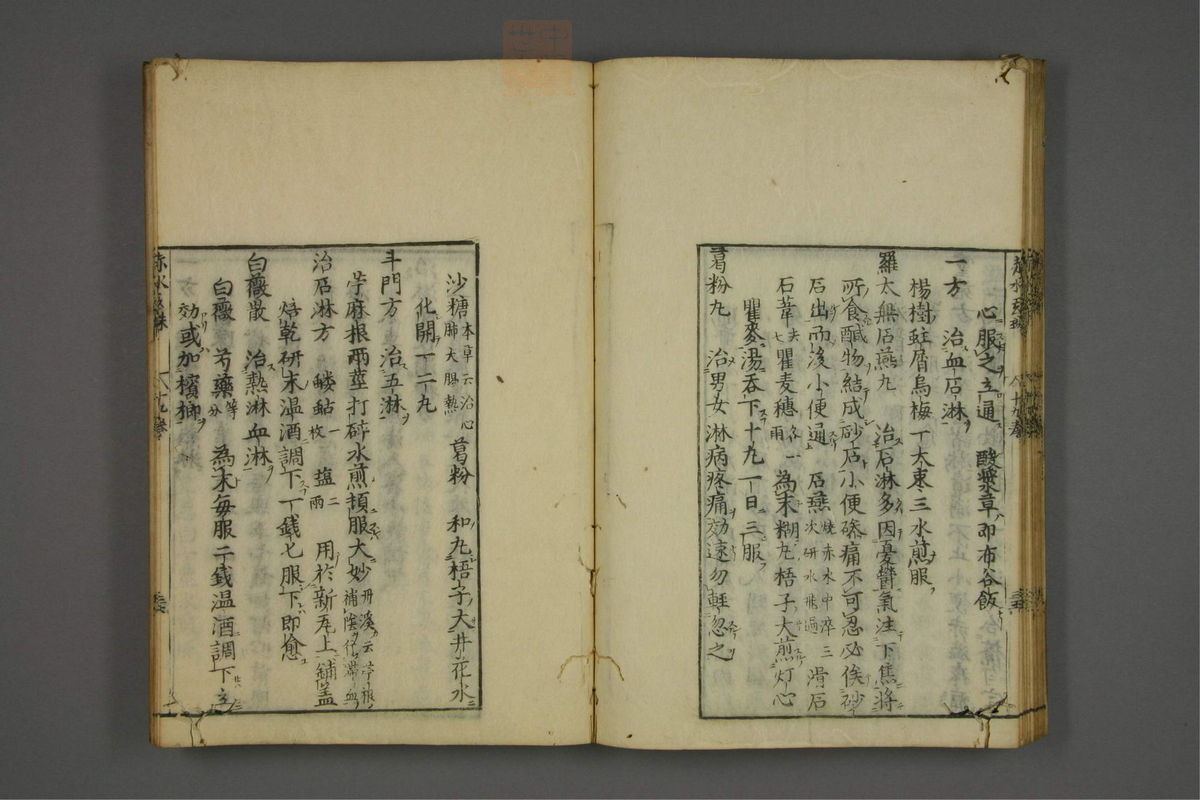 心服之立通 酸漿草即布谷飯
一方 治血石淋
楊樹蛀屑烏梅一大棗三水煎服
羅太無石燕丸 治石淋多因憂鬱氣注下焦將
所食鹹物結成砂石小便磣痛不可忍必俟砂
石出而後小便通 石燕燒赤水中淬三次研水飛過滑石
石葦去毛瞿麦穗各一兩為末糊丸梧子大煎灯心
瞿麥湯吞下十九一日三服
葛粉丸 治男女淋病疼痛効速勿輕忽之
沙糖本草云治心肺大腸熱葛粉 和丸梧子大井花水
化開一二丸
斗門方 治五淋
苧麻根兩莖打碎水煎頓服大妙丹溪云苧根補陰行滯血
治石淋方 鰱鮎一枚 塩二兩 用於新瓦上鋪蓋
焙乾研末温酒調下一錢七服下即愈
白薇散 治熱淋血淋
白薇 芍藥等分 為末每服二錢温酒調下立
効或加檳榔